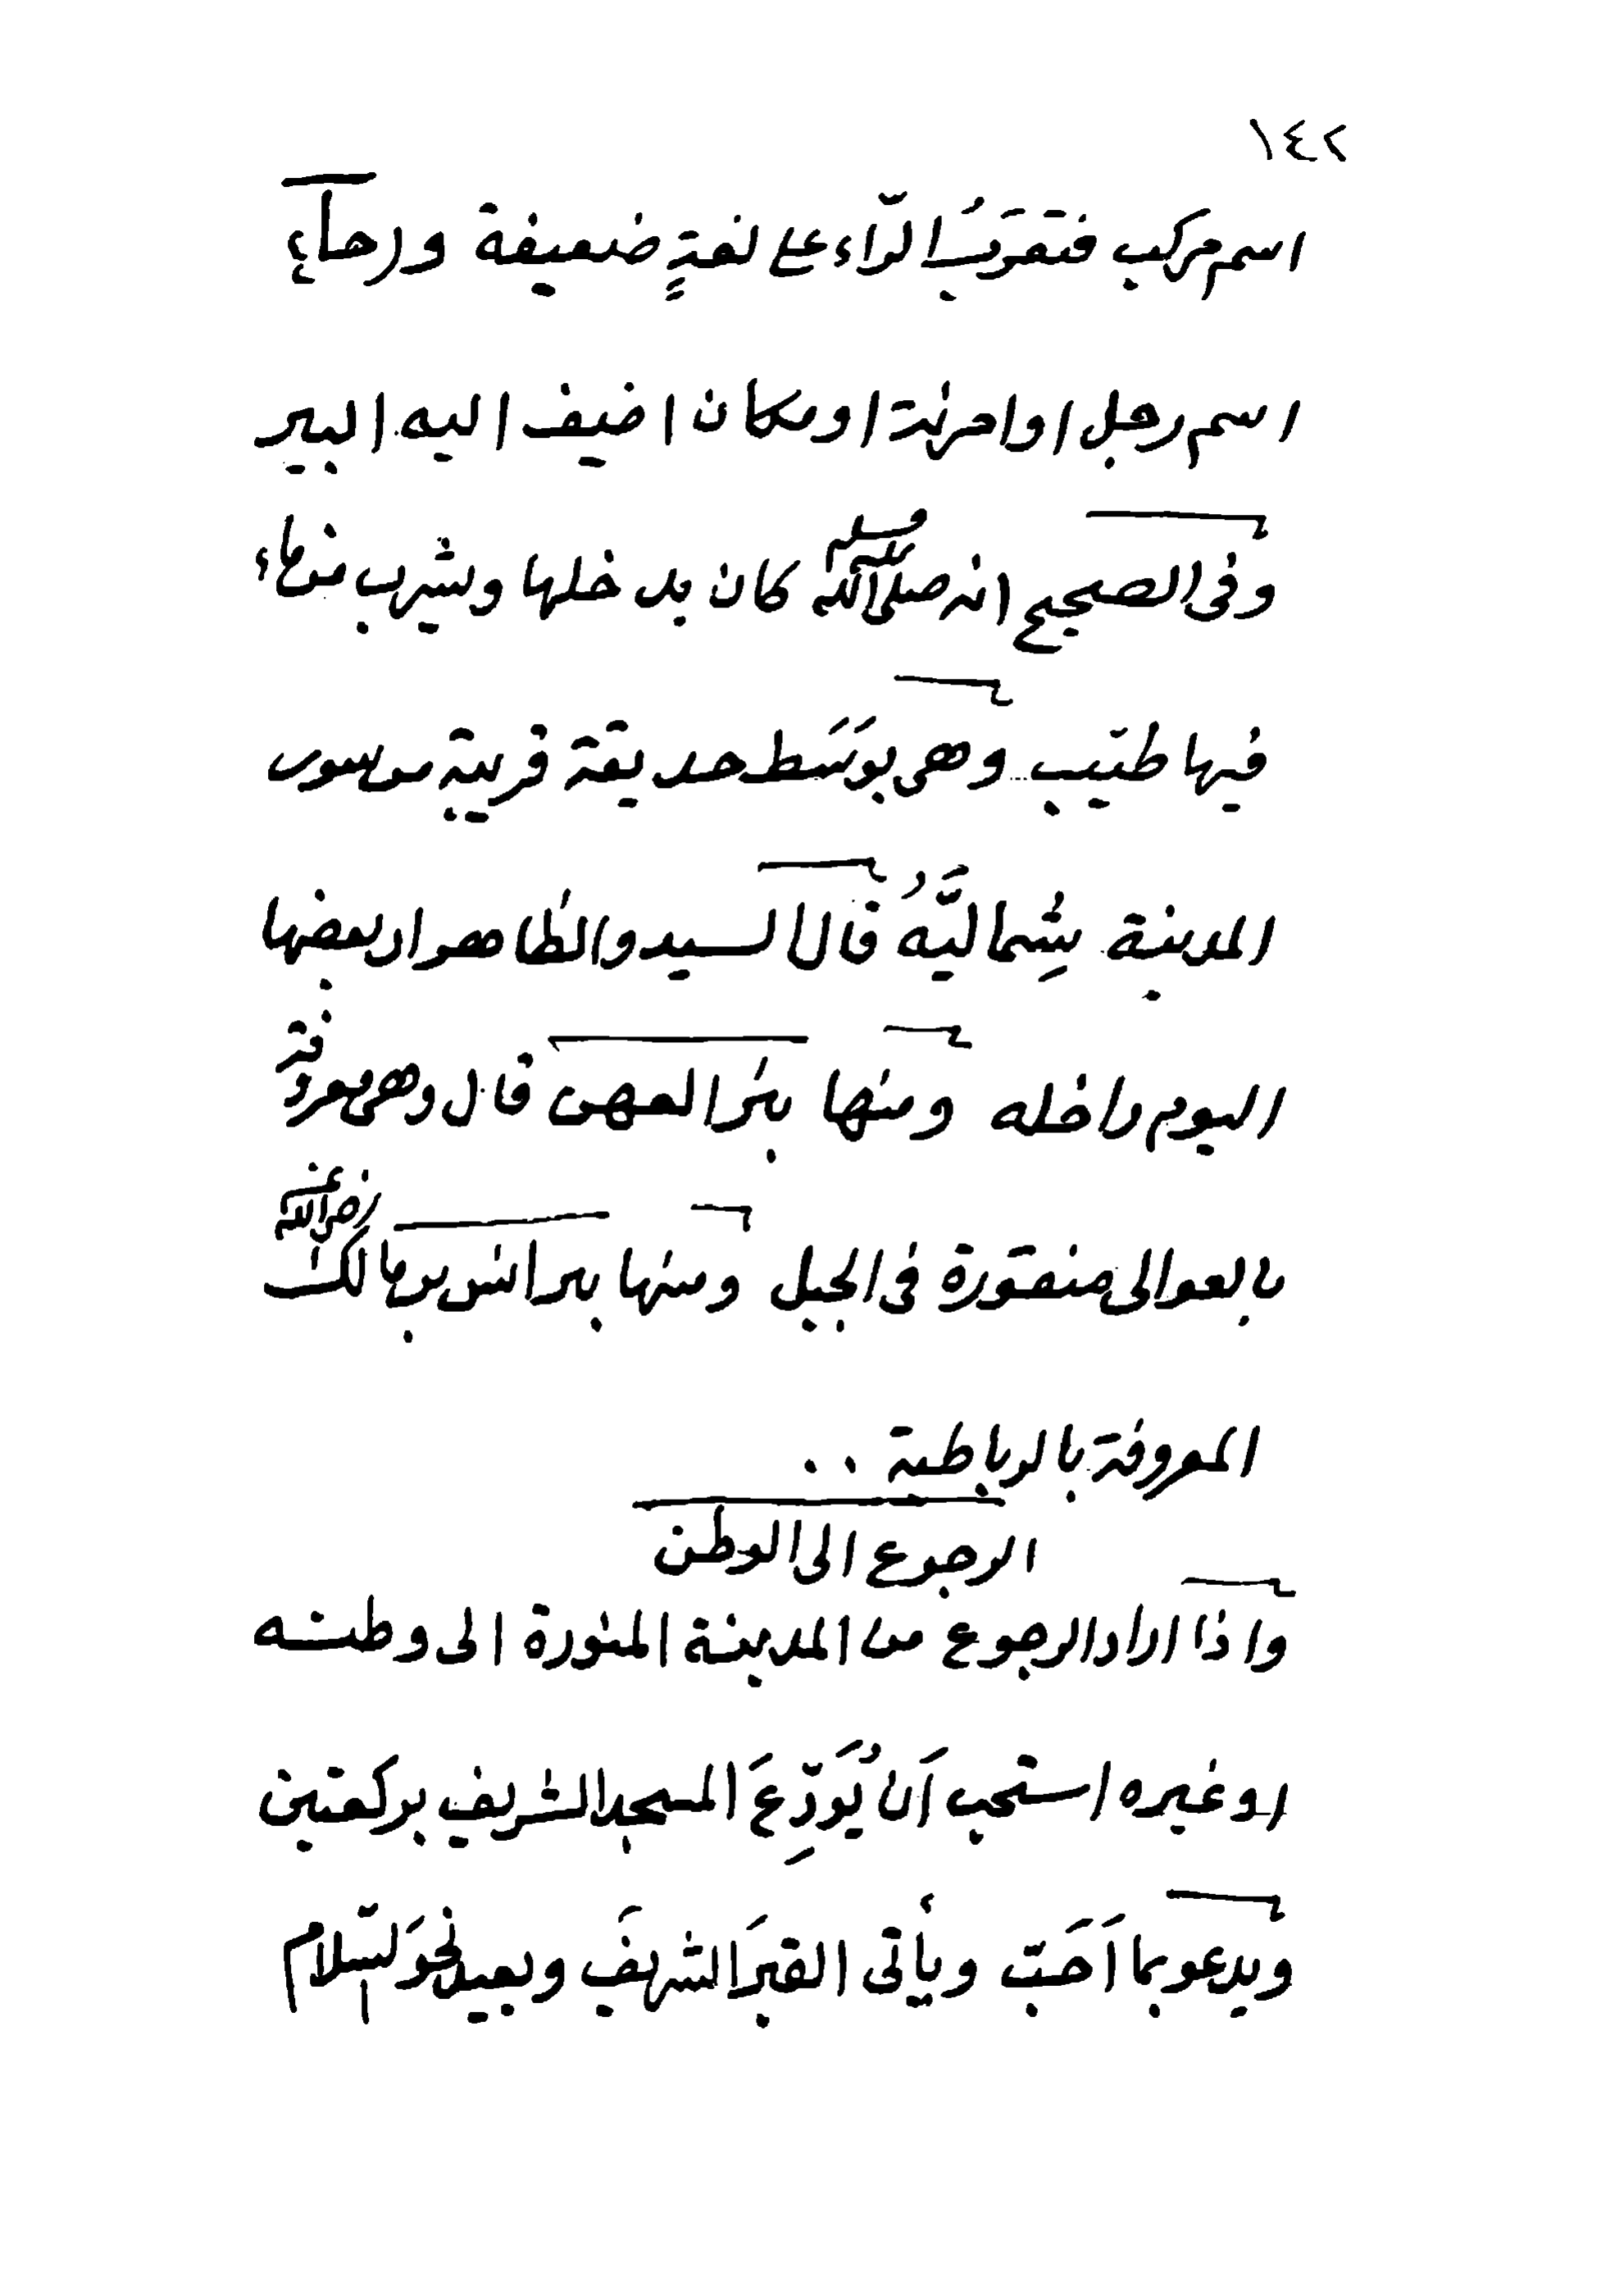 ١٤٢
اسم مركب فتعرب الرّاء على لغةٍ ضعيفة و(حاء)
اسم رجل او امرئة او مكان اضيف اليه البير
وفى الصحيح انه صلى الله عليه وسلم كان يدخلها ويشرب من ماء
فيها طيّب وهى بوَسَط حديقة قريبة من سور
المدينة شِماليَّهُ قال السيد والظاهر ان بعضها
اليوم داخله ومنها بئر العهن قال وهى معروفة
بالعوالى منقورة فى الجبل ومنها بير انس بن مالك رضى الله عنه
المعروفة بالرباطية ..
الرجوع الى الوطن
واذا اراد الرجوع من المدينة المنورة الى وطنه
او غيره استحب اَن يُوَدِّعَ المسجد الشريف بركعتين
ويدعو بما اَحَبّ ويأتى القبرَ الشريفَ ويعيد نحوَ السّلام